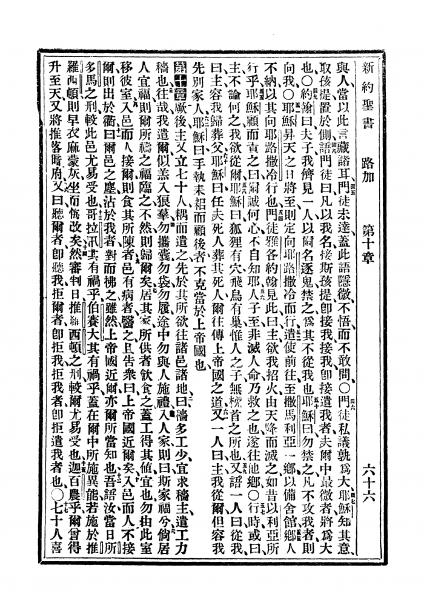 新約聖書 路加 第十章 六十六
與人、當以此言藏諸耳、門徒未達、蓋此語隱微、不悟而不敢問、○門徒私議孰爲大、耶穌知其意、
取孩提置於側、語門徒曰、凡以我名接斯孩提、卽接我、接我、卽接遣我者、夫爾中最微者、將爲大
也、○約翰曰、夫子、我儕見一人、以爾名逐鬼、禁之、爲其不從我也、耶穌曰、勿禁之、凡不攻我者、則
向我、○耶穌昇天之日將至、則定向耶路撒冷而行、遣使前往、至撒馬利亞一鄉、以備舍館、鄉人
不納、以其向耶路撒冷行也、門徒雅各約翰見此、曰、主欲我招火由天降而滅之、如昔以利所
行乎、耶穌顧而責之曰、爾誠何心、不自知耶、人子至、非滅人命、乃救之也、遂往他鄉、○行時、或曰、
主、不論何之、我欲從爾、耶穌曰、狐狸有穴、飛鳥有巢、惟人之子、無枕首之所也、又語一人曰、從我、
曰、主容我歸葬父、耶穌曰、任夫死人葬其死人、爾往傳上帝國之道、又一人曰、主、我從爾、但容我
先別家人、耶穌曰、手執耒耜而顧後者、不克當於上帝國也、
第十章 厥後主又立七十人、耦而遣之、先於其所欲往諸邑諸地、曰、穡多工少、宜求穡主、遣工力
穡也、往哉、我遣爾、似羔入狼羣、勿攜囊、勿袋、勿履、途中勿與人施禮、入人家、則曰、斯家福兮、倘居
人宜福、則爾所禱之福臨之、不然、則歸爾矣、居其室、所供者飲食之、蓋工得其値宜也、勿由此室
移彼室、入邑、而人接爾、則食其所陳者、邑有病者、醫之、且告衆曰、上帝國近爾矣、入邑、而人不接
爾、則出於衢曰、爾邑之塵、沾於我者、對而拂之、雖然、上帝國近爾、亦爾所當知也、吾語汝、當日所
多馬之刑、較此邑尤易受也、哥拉汛其有禍乎、伯賽大其有禍乎、蓋在爾中所施異能、若施於推
羅西頓、則早衣麻蒙灰、坐而悔改矣、然審判日、推羅西頓之刑、較爾尤易受也、迦百農乎、爾曾得
升至天、又將推落陰府、又曰、聽爾者、卽聽我、拒爾者、卽拒我、拒我者、卽拒遣我者也、○七十人喜